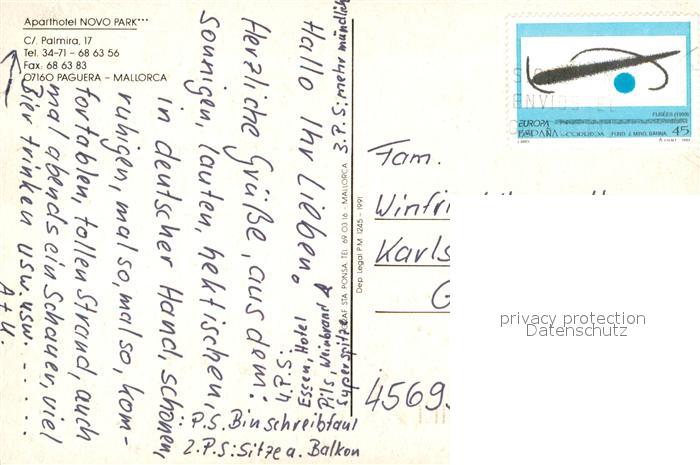 Aparthotel NOVO PARK***
C/. Palmira, 17
Tel. 34-71 - 68 63 56
Fax: 68 63 83
07160 PAGUERA - MALLORCA
Hallo Ihr Lieben.
Herzliche Grüße, aus dem:
sonnigen, lauten, hektischen,
in deutscher Hand, schönen,
ruhigen, mal so, mal so, kom-
fortablen, tollen Strand, auch
mal abends ein Schauer, viel
Bier trinken usw. usw. - - - - -
A + U.
P.S. Bin schreibfaul
2.P.S: Sitze a. Balkon
3.P.S: mehr mündlich
4.P.S:
Essen, Hotel
Pils, Weinbrand &
superspitze
STA. PONSA. TEL. 69 03 16 - MALLORCA
Dep. Legal P.M. 1245 - 1991
FUSÉES (1959)
EUROPA
ESPAÑA CORREOS FUND. J. MIRÓ. BARNA. 45
Fam.
Winfri
Karls
G
4569
privacy protection
Datenschutz